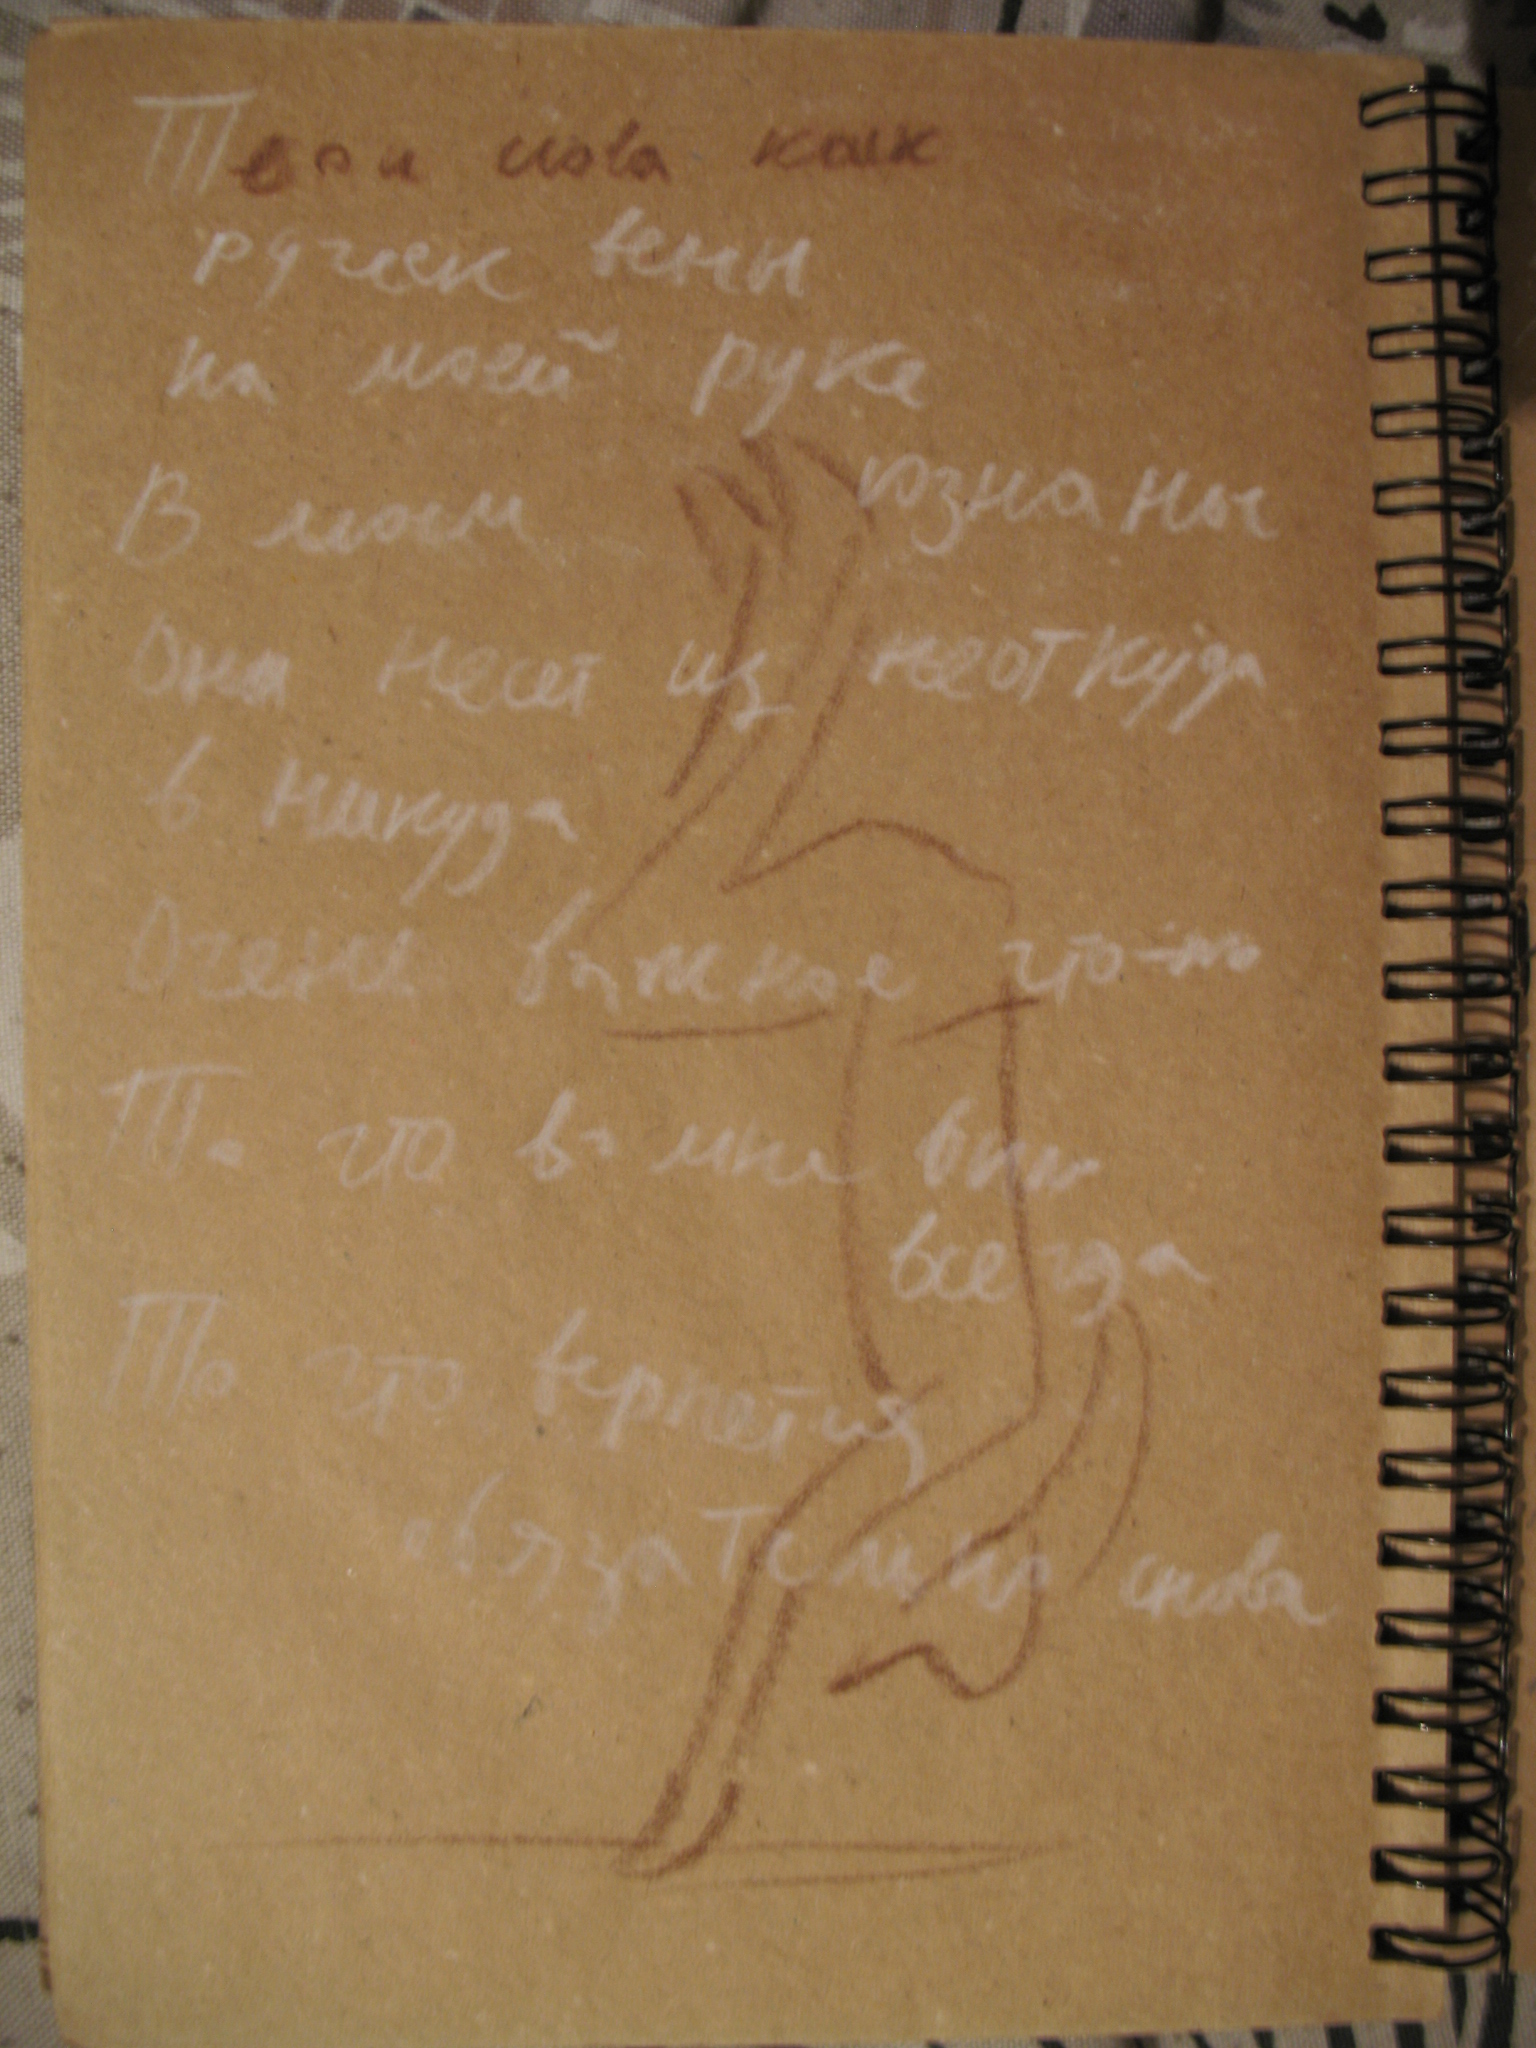 Твои слова как
ручеек вены
на моей руке
В моем сознанье
Они несет из неоткуда
в никуда
Очень важное что-то
То что во мне был
всегда
То что вернется
обязательно снова